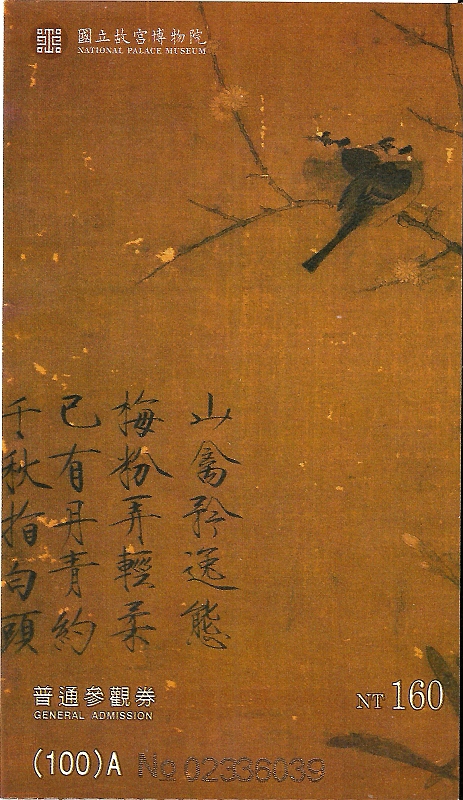 國立故宮博物院
NATIONAL PALACE MUSEUM
山禽矜逸態
梅粉弄輕柔
已有丹青約
千秋指白頭
普通參觀券
GENERAL ADMISSION
NT 160
(100)A
No 02336039